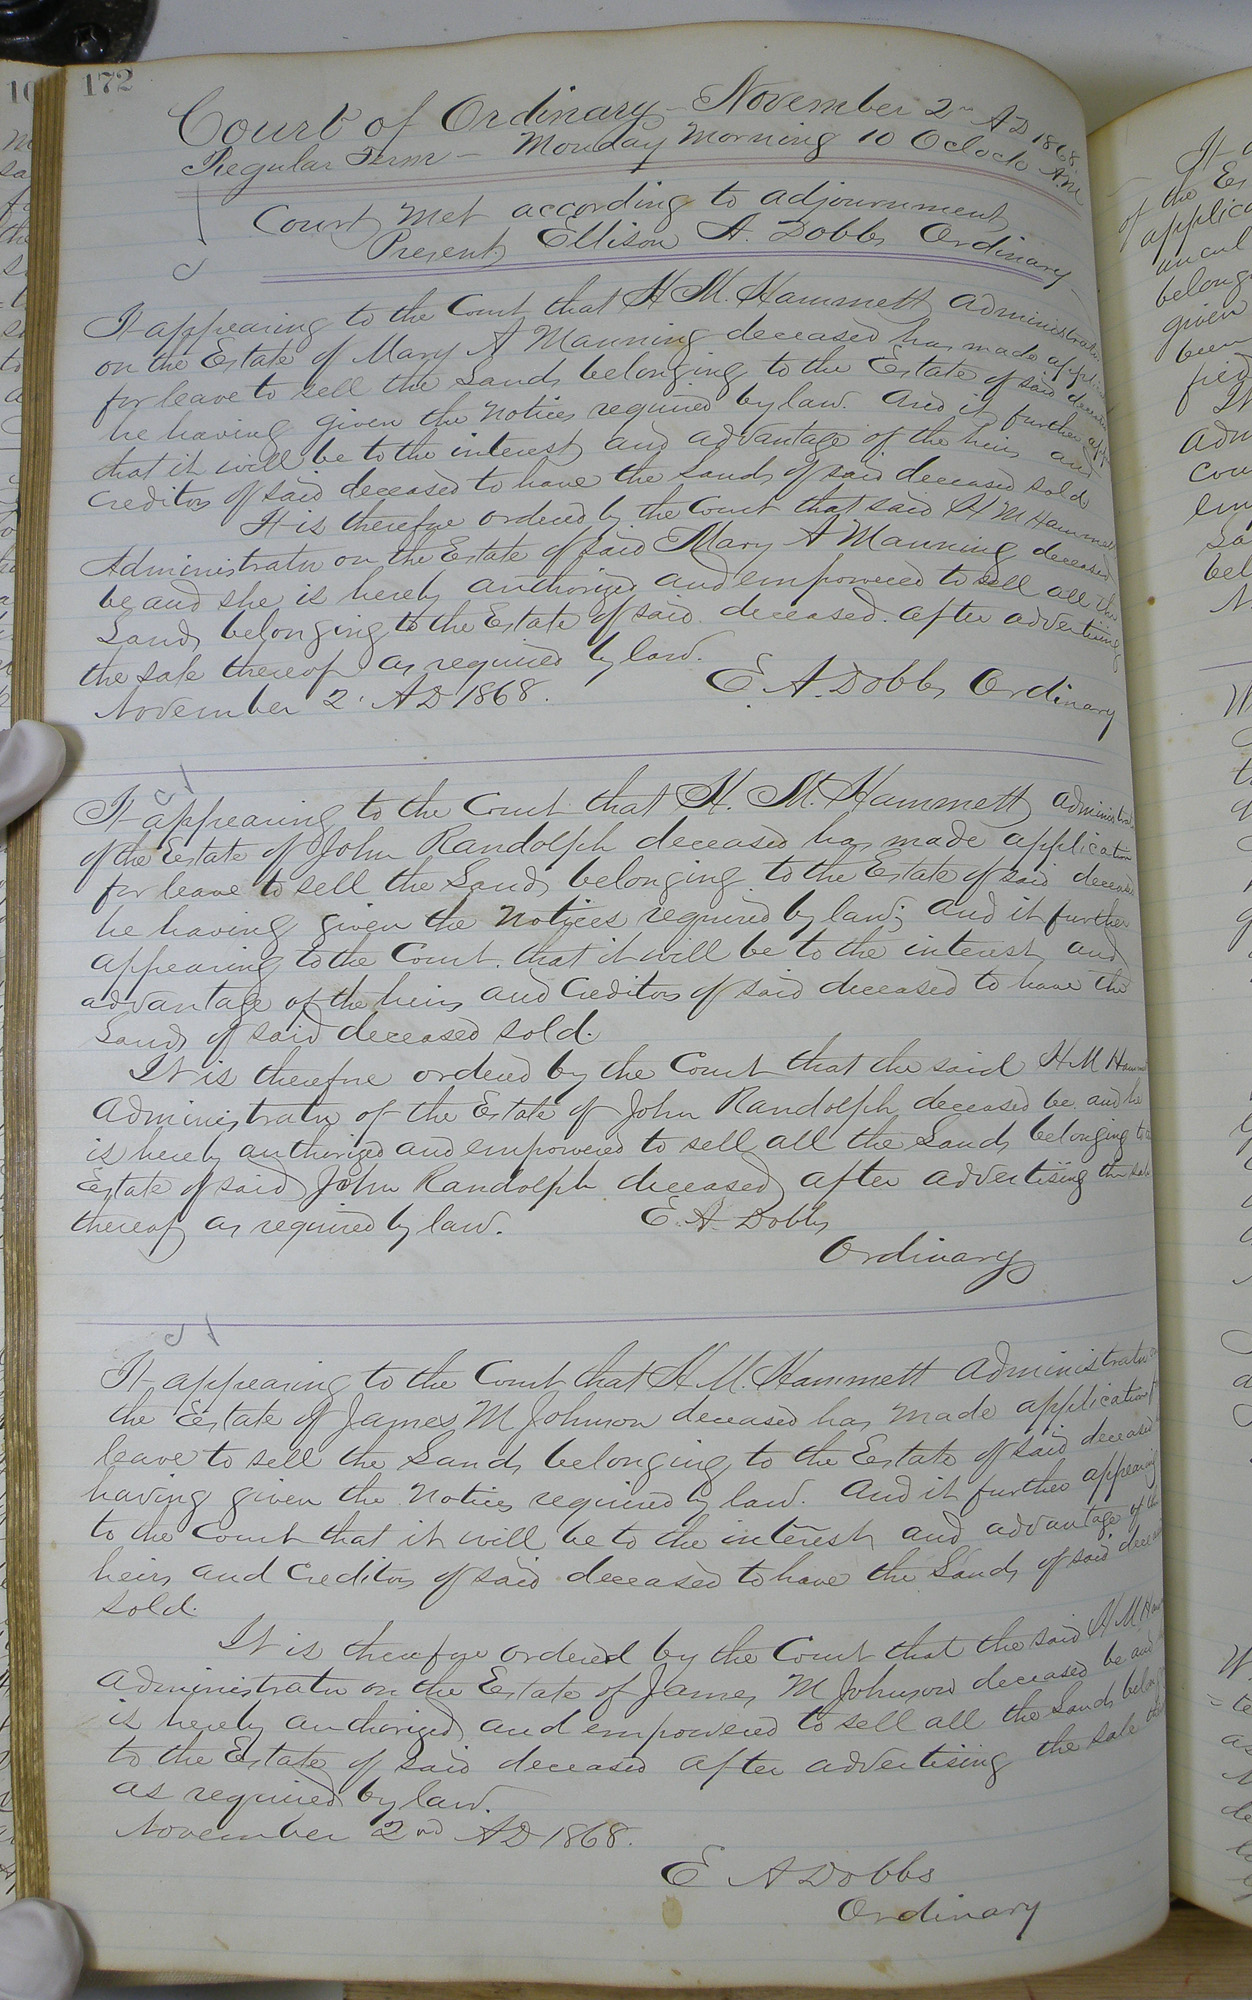 172
Court of Ordinary - November 2nd AD 1868.
Regular Term - Monday Morning 10 Oclock A.M
Court Met according to adjournment
Present Ellison A. Dobbs Ordinary
It appearing to the Court that H M. Hammett Administrator
on the Estate of Mary A Manning deceased has made
for leave to sell the Lands belonging to the Estate of said deceased
he having given the Notices required by law. And it further
that it will be to the interest and advantage of the heirs and
Creditors of said deceased to have the Lands of said deceased sold
It is therefore ordered by the Court that said H M Hammett
Administrator on the Estate of said Mary A Manning deceased
be and she is hereby authorized and empowered to sell all the
Lands belonging to the Estate of said deceased. after advertising
the sale thereof as required by law.
November 2. AD 1868. E. A. Dobbs Ordinary
It appearing to the Court that H. M. Hammett
of the Estate of John Randolph deceased has made application
for leave to sell the Lands belonging to the Estate of said deceased
he having given the Notices required by law; and it further
appearing to the Court. that it will be to the interest and
advantage of the heirs and Creditors of said deceased to have the
Lands of said deceased sold.
It is therefore ordered by the Court that the said H M
Administrator of the Estate of John Randolph deceased be and he
is hereby authorized and empowered to sell all the Lands belonging to
Estate of said John Randolph deceased after advertising the sale
thereof as required by law. E. A. Dobbs
Ordinary
It appearing to the Court that H M. Hammett Administrator
the Estate of James M Johnson deceased has made application
leave to sell the Lands belonging to the Estate of said deceased
having given the Notices required by law. And it further appearing
to the Court that it will be to the interest and advantage of the
heirs and Creditors of said deceased to have the Lands of said
sold.
It is therefore ordered by the Court that the said H M
Administrator on the Estate of James M Johnson deceased be and
is hereby authorized and empowered to sell all the Lands
to the Estate of said deceased after advertising the sale
as required by law.
November 2nd AD 1868.
E A Dobbs
Ordinary